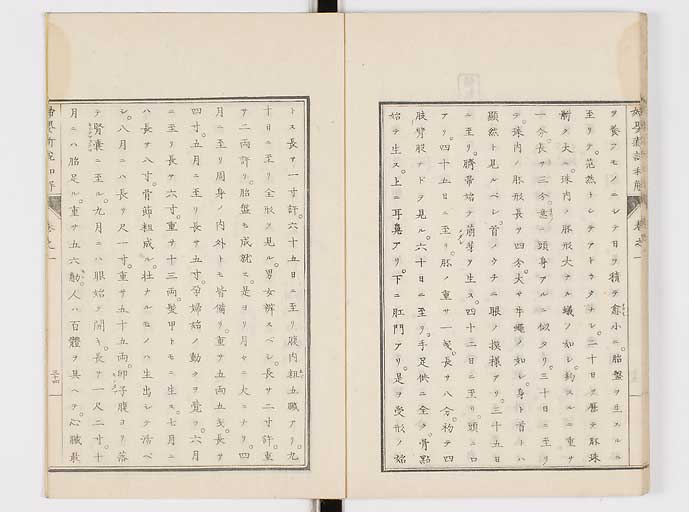 ヲ養フモノニシテ日ヲ積テ愈小ニ。胎盤ヲ生スルニ
至リテ。茫然トシテアトカタナシ。二十日ヲ歴テ胚珠
漸ク大ニ。珠内ノ胚形大サ蟻ノ如シ。約スルニ重サ
一分。長サ三分。意ニ頭身アルニ似タリ。三十日ニ至リ
テ。珠内ノ胚形長サ四分。大サ牛蠅ノ如シ。身ト首トハ
顯然ト見ルベシ。首ノウチニ眼ノ摸樣アリ。三十五日
ニ至リ。臍帯始テ萌芽ヲ生ス。四十二日ニ至リ。頭ニ口
アリ。四十五日ニ至リ。胚ノ重サ一戔。長サ八分。初テ四
肢臂股ナドヲ見ル。六十日ニ至リ。手足供ニ全ク。骨點
始テ生ス。上ニ耳鼻アリ。下ニ肛門アリ。是ヲ受形ノ始
トス。長サ一寸許。六十五日ニ至リ。腹内粗五臓アリ。九
十日ニ至リ。全形ヲ見ル。男女辨スベシ。長サ二寸許。重
サ二両許リ。胎盤モ成就ス。是ヨリ月々ニ大ニナリ。四
月ニ至リ。周身ノ内外トモ皆備リ。重サ五両五戔。長サ
四寸。五月ニ至リ。長サ五寸。孕婦始ノ動クヲ覺フ。六月
ニ至リ。長サ六寸。重サ十三両。髪甲トモニ生ス。七月ニ
ハ長サ八寸。骨節粗成ル。壮ナルモノハ生出シテ活ベ
シ。八月ニハ長サ尺一寸。重サ五十五両。卵子腹ヨリ落
テ腎嚢ニ至ル。九月ニハ眼始テ開キ。長サ一尺二寸。十
月ニハ胎足ル。重サ五六觔。人ハ百體ヲ具ヘテ。心臓最